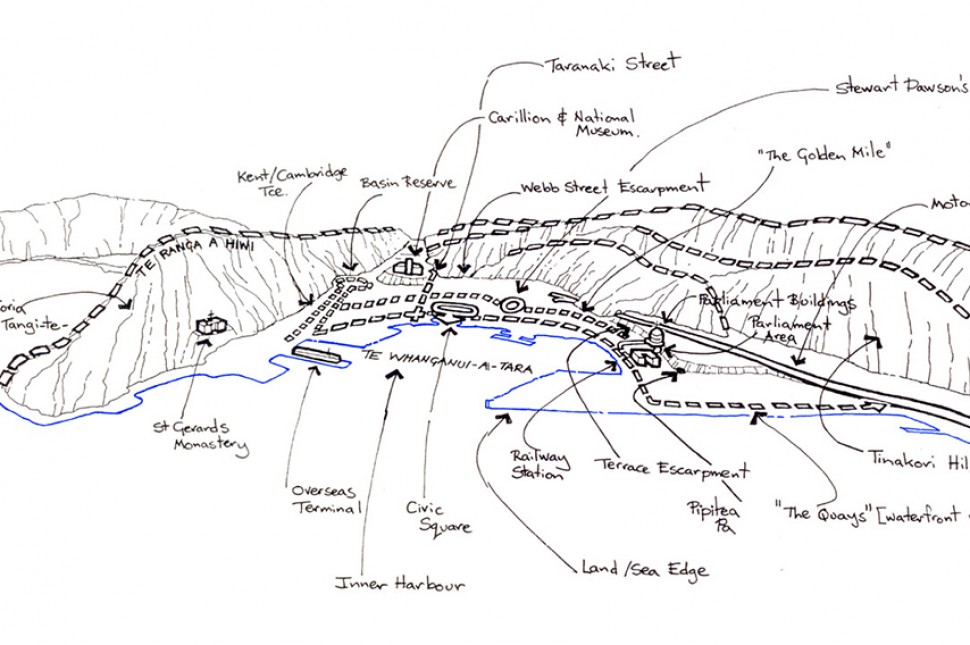 Taranaki Street
Stewart Dawson's
Carillion & National
Museum.
"The Golden Mile"
Kent/Cambridge
Tce.
Basin Reserve
Webb Street Escarpment
Moto
TE RANGA A HIWI
oria
Tangi-te-
Parliament Buildings
Parliament
Area
TE WHANGANUI-A-TARA
St Gerards
Monastery
Railway
Station
Terrace Escarpment
Tinakori Hil
Overseas
Terminal
Civic
Square
Pipitea
Pa
"The Quays" [waterfront
Land/Sea Edge
Inner Harbour